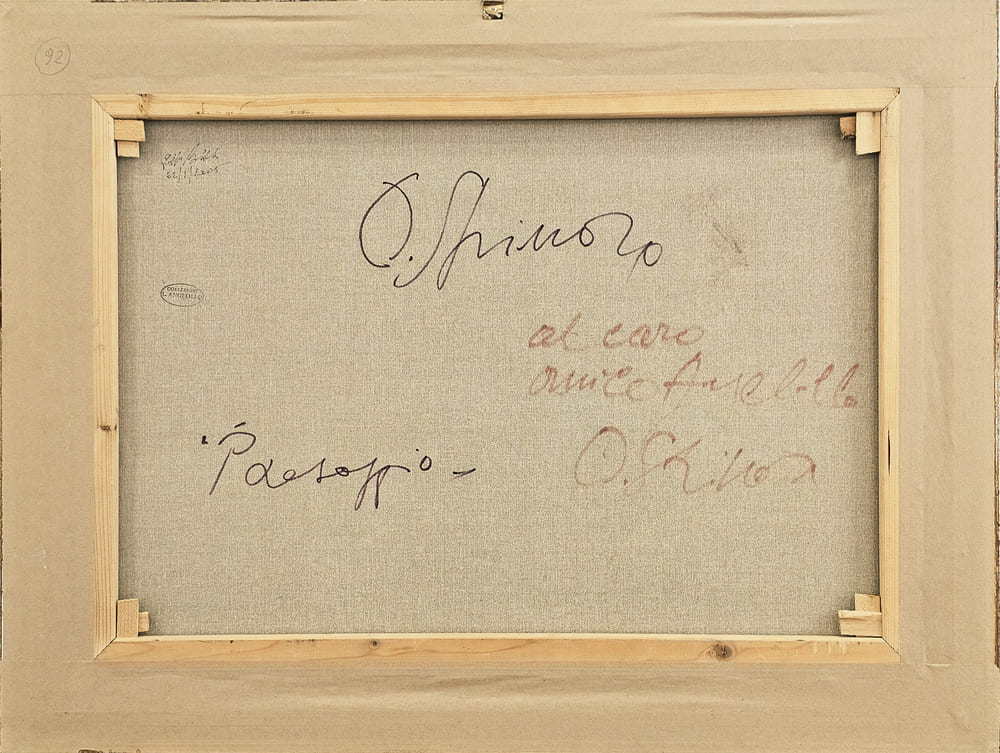 92
22/1/2005
O. Spinosa
COLLEZIONE
L'ANGELILLO
al caro
amico Angelillo
"Paesaggio -
O. Spinosa